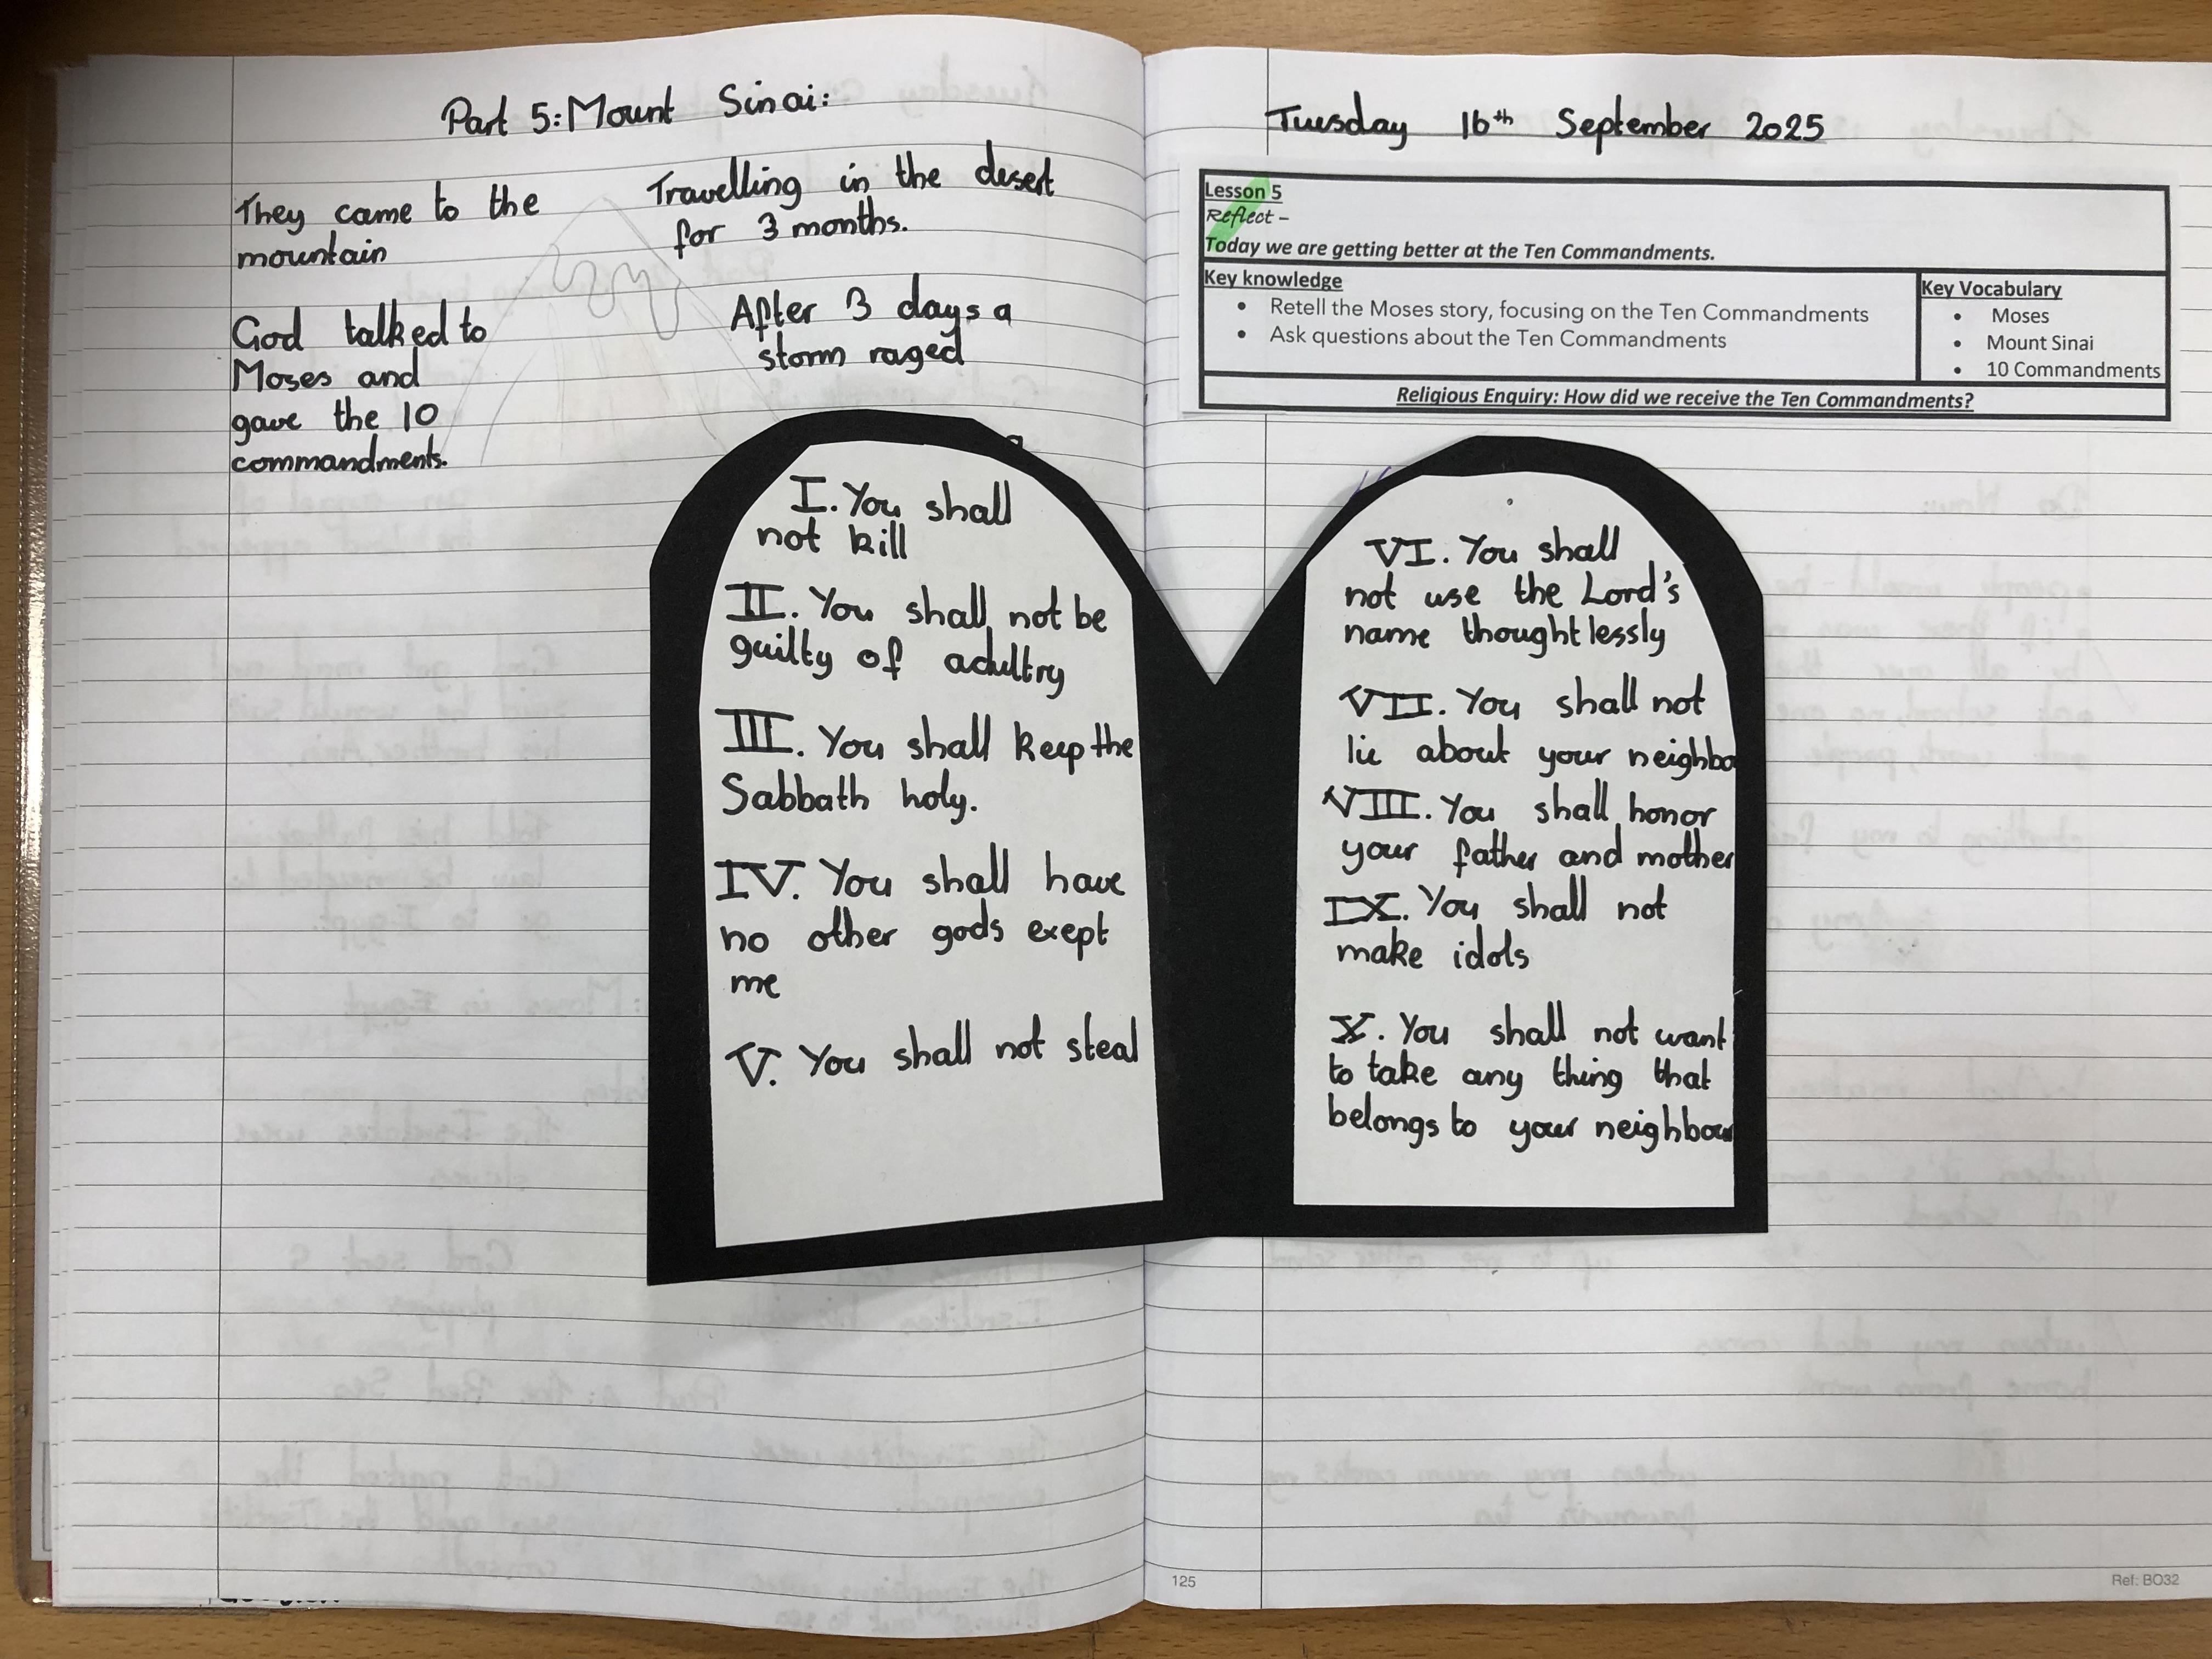 Part 5: Mount Sinai:
They came to the
mountain
God talked to
Moses and
gave the 10
commandments.
Travelling in the desert
for 3 months.
After 3 days a
storm raged
I. You shall
not kill
II. You shall not be
guilty of adultry
III. You shall keep the
Sabbath holy.
IV. You shall have
no other gods exept
me
V. You shall not steal
Tuesday 16th September 2025
Lesson 5
Reflect -
Today we are getting better at the Ten Commandments.
Key knowledge
• Retell the Moses story, focusing on the Ten Commandments
• Ask questions about the Ten Commandments
Key Vocabulary
• Moses
• Mount Sinai
• 10 Commandments
Religious Enquiry: How did we receive the Ten Commandments?
VI. You shall
not use the Lord's
name thoughtlessly
VII. You shall not
lie about your neighbo
VIII. You shall honor
your father and mother
IX. You shall not
make idols
X. You shall not want
to take any thing that
belongs to your neighbour
125
Ref: BO32